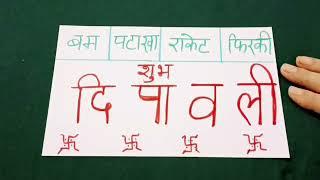 बम पटाखा राकेट फिरकी
शुभ
दि पा व ली
卐 卐 卐 卐